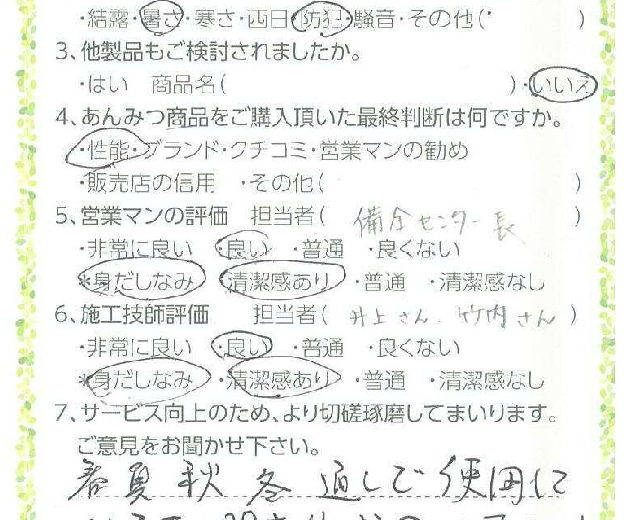 ・結露・暑さ・寒さ・西日・防犯・騒音・その他( )
3、他製品もご検討されましたか。
・はい 商品名( )・いいえ
4、あんみつ商品をご購入頂いた最終判断は何ですか。
・性能・ブランド・クチコミ・営業マンの勧め
・販売店の信用 ・その他( )
5、営業マンの評価 担当者( センター長 )
・非常に良い ・良い ・普通 ・良くない
*身だしなみ ・清潔感あり ・普通 ・清潔感なし
6、施工技師評価 担当者( 井上さん、竹内さん )
・非常に良い ・良い ・普通 ・良くない
*身だしなみ ・清潔感あり ・普通 ・清潔感なし
7、サービス向上のため、より切磋琢磨してまいります。
ご意見をお聞かせ下さい。
春夏秋冬通しで使用に